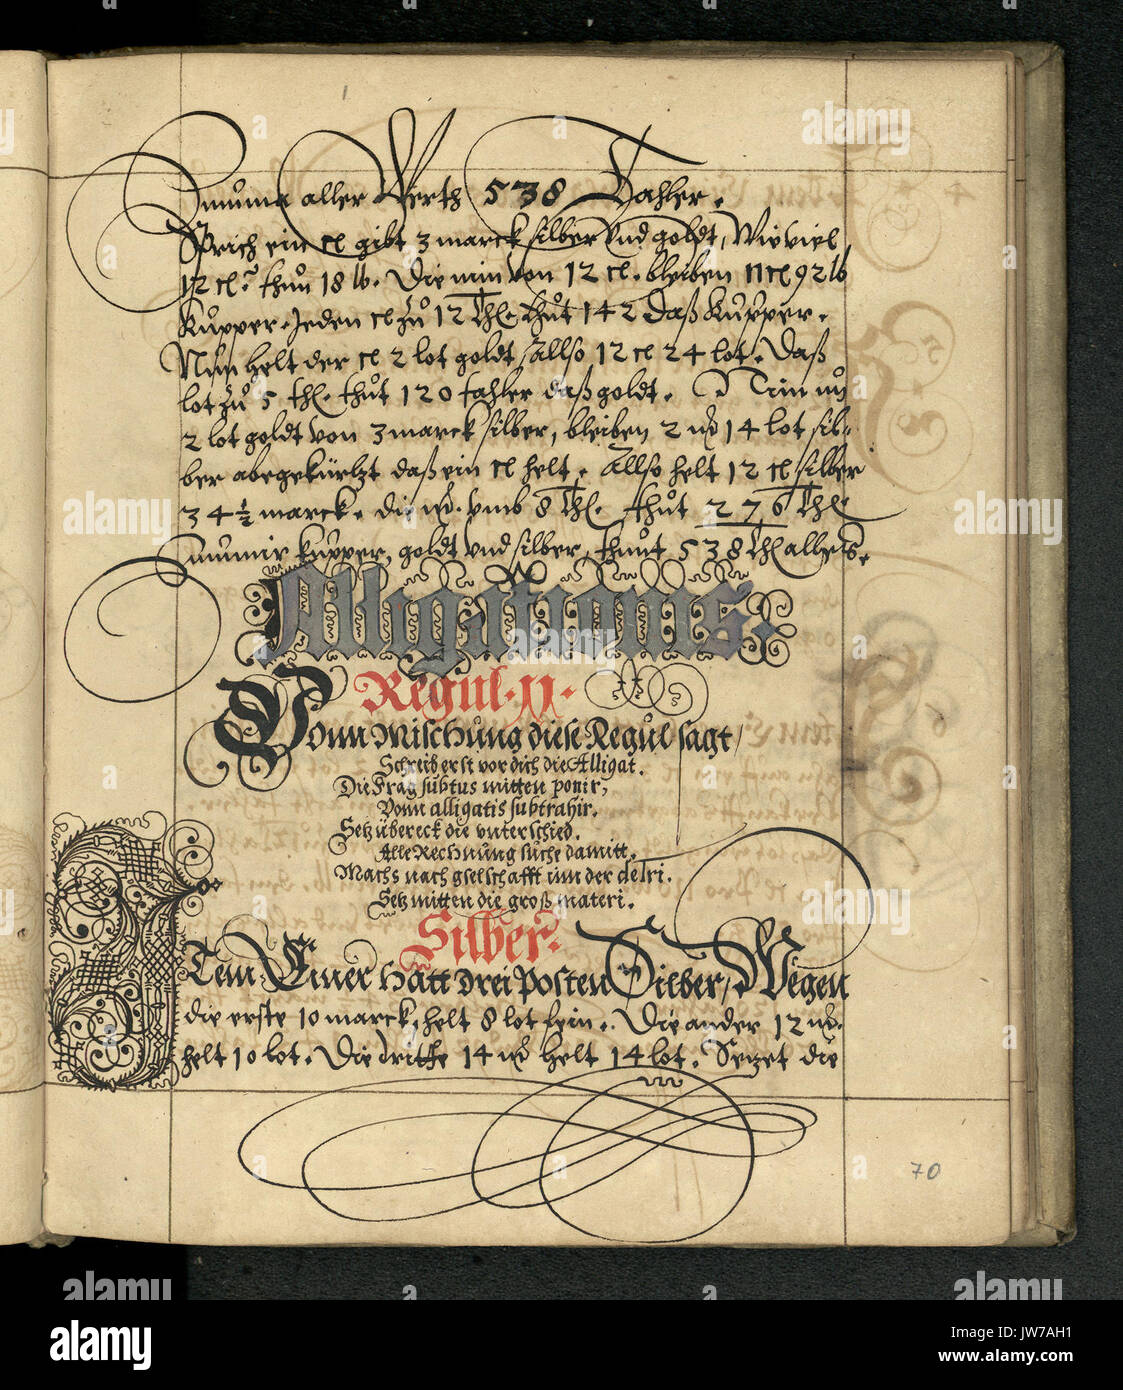 Summa aller Werth 538 Dahler.
Sprich ein cl gibt 3 marck silber Vnd goldt, Wie viel
12 cl. thun 18 lb. Die nim von 12 cl. bleiben 11 cl 92 lb
Kupper. Jeden cl zu 12 thl. thut 142 daß Kupper.
Nun helt der cl 2 lot goldt Allso 12 cl 24 lot. Daß
lot zu 5 thl. thut 120 tahler daß goldt. Nim nu
2 lot goldt von 3 marck silber, bleiben 2 mr 14 lot sil-
ber abgekürtzt daß ein cl helt. Allso helt 12 cl silber
34½ marck. die mr. vmb 8 thl. thut 276 thl
Summir kupper, goldt vnd silber, thutt 538 thl alhets.
Alligationis.
Regul. 11.
Vonn Mischung diese Regul sagt/
Schreib erst vor dich die Alligat.
Die Frag subtus mitten ponir,
Vonn alligatis subtrahir.
Setz übereck die vnterschied.
Alle Rechnung suche damitt.
Machs nach gselschafft inn der detri.
Setz mitten die groß materi.
Silber.
Item Einer hatt drei posten Silber/ Wegen
die erste 10 marck, helt 8 lot fein. Die ander 12 mr.
helt 10 lot. Die dritte 14 mr helt 14 lot. Setzet die
70
alamy
Image ID: JW7AH1
www.alamy.com